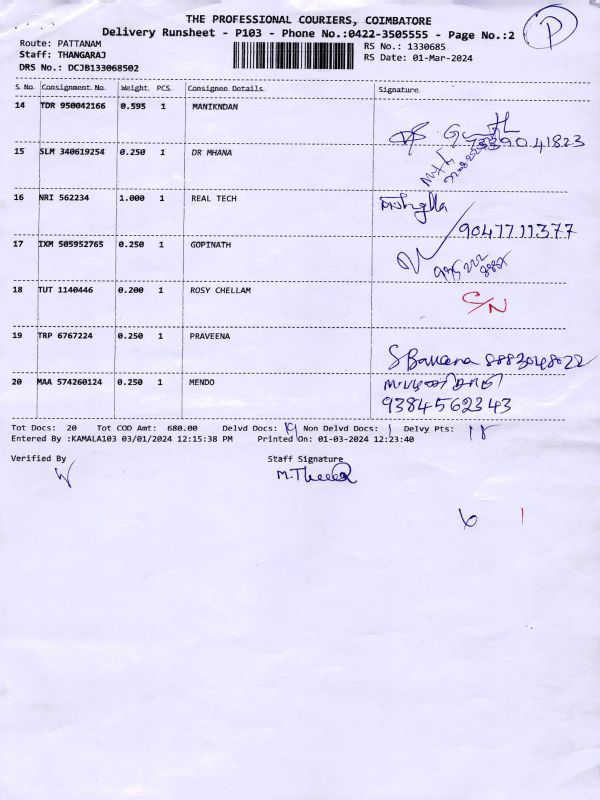 THE PROFESSIONAL COURIERS, COIMBATORE
Delivery Runsheet - P103 - Phone No.:0422-3505555 - Page No.:2
P
Route: PATTANAM
RS No.: 1330685
Staff: THANGARAJ
RS Date: 01-Mar-2024
DRS No.: DCJB133068502
S.No. Consignment No. Weight PCS. Consignee Details Signature
14 TDR 950042166 0.595 1 MANIKNDAN
15 SLM 340619254 0.250 1 DR MHANA
16 NRI 562234 1.000 1 REAL TECH
9047711377
17 IXM 505952765 0.250 1 GOPINATH
18 TUT 1140446 0.200 1 ROSY CHELLAM
C/N
19 TRP 6767224 0.250 1 PRAVEENA
20 MAA 574260124 0.250 1 MENDO
9384562343
Tot Docs: 20 Tot COD Amt: 680.00 Delvd Docs: 19 Non Delvd Docs: 1 Delvy Pts: 18
Entered By :KAMALA103 03/01/2024 12:15:38 PM Printed On: 01-03-2024 12:23:40
Verified By Staff Signature
6 1